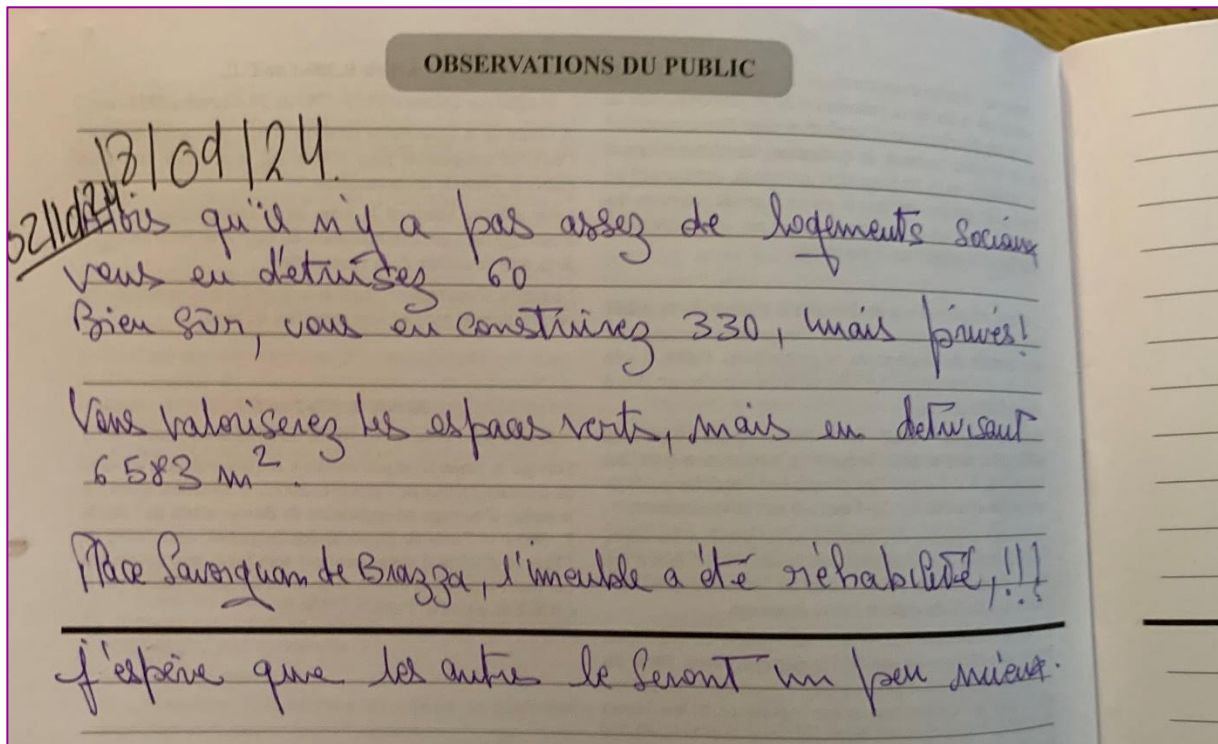 OBSERVATIONS DU PUBLIC
18/09/24.
Alors qu'il n'y a pas assez de logements sociaux
vous en détruisez 60
Bien sûr, vous en construirez 330, mais privés!
Vous valoriserez les espaces verts, mais en détruisant
6583 m².
Place Savorgnan de Brazza, l'imeuble a été réhabilité, !!!
j'espère que les autres le seront un peu mieux.